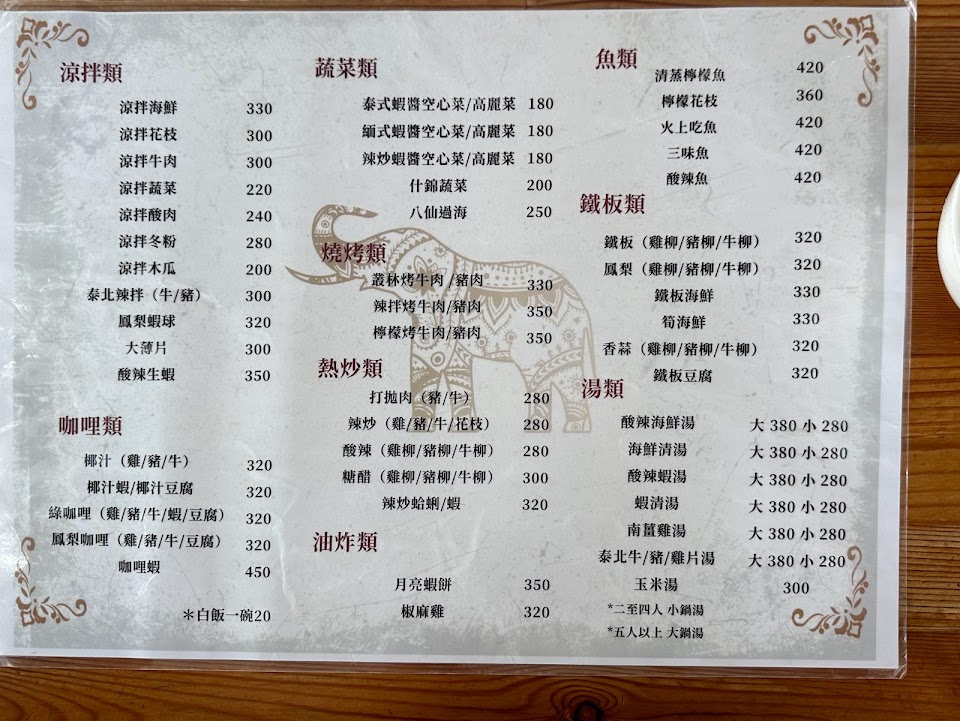 涼拌類
涼拌海鮮 330
涼拌花枝 300
涼拌牛肉 300
涼拌蔬菜 220
涼拌酸肉 240
涼拌冬粉 280
涼拌木瓜 200
泰北辣拌（牛/豬） 300
鳳梨蝦球 320
大薄片 300
酸辣生蝦 350
咖哩類
椰汁（雞/豬/牛） 320
椰汁蝦/椰汁豆腐 320
綠咖哩（雞/豬/牛/蝦/豆腐） 320
鳳梨咖哩（雞/豬/牛/豆腐） 320
咖哩蝦 450
＊白飯一碗20
蔬菜類
泰式蝦醬空心菜/高麗菜 180
緬式蝦醬空心菜/高麗菜 180
辣炒蝦醬空心菜/高麗菜 180
什錦蔬菜 200
八仙過海 250
燒烤類
叢林烤牛肉 /豬肉 330
辣拌烤牛肉/豬肉 350
檸檬烤牛肉/豬肉 350
熱炒類
打拋肉（豬/牛） 280
辣炒（雞/豬/牛/花枝） 280
酸辣（雞柳/豬柳/牛柳） 280
糖醋（雞柳/豬柳/牛柳） 300
辣炒蛤蜊/蝦 320
油炸類
月亮蝦餅 350
椒麻雞 320
魚類
清蒸檸檬魚 420
檸檬花枝 360
火上吃魚 420
三味魚 420
酸辣魚 420
鐵板類
鐵板（雞柳/豬柳/牛柳） 320
鳳梨（雞柳/豬柳/牛柳） 320
鐵板海鮮 330
筍海鮮 330
香蒜（雞柳/豬柳/牛柳） 320
鐵板豆腐 320
湯類
酸辣海鮮湯 大 380 小 280
海鮮清湯 大 380 小 280
酸辣蝦湯 大 380 小 280
蝦清湯 大 380 小 280
南薑雞湯 大 380 小 280
泰北牛/豬/雞片湯 大 380 小 280
玉米湯 300
*二至四人 小鍋湯
*五人以上 大鍋湯